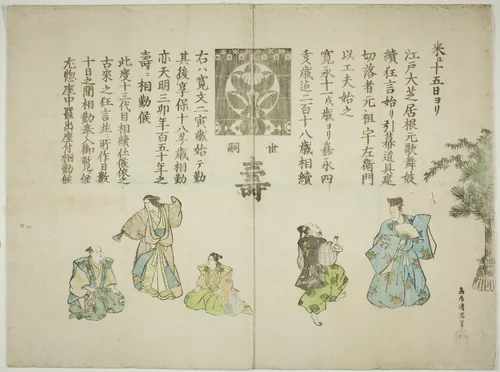 来ル十五日ヨリ
江戸大芝居根元歌舞妓
續狂言始リ引幕道具建
切落者元祖宇左衛門
以工夫始之
寛永十一戌歳ヨリ嘉永四
亥歳迄二百十八歳相續
世嗣
壽
右ハ寛文二寅歳始テ勤
其後享保十八丑歳相勤
亦天明三卯年百五十年之
壽ニ相勤候
此度十二代目相續仕候依之
古來之狂言並ニ所作日數
十日之間相勤奉入御覧候
尤惣座中罷出付相勤候
鳥居清満筆